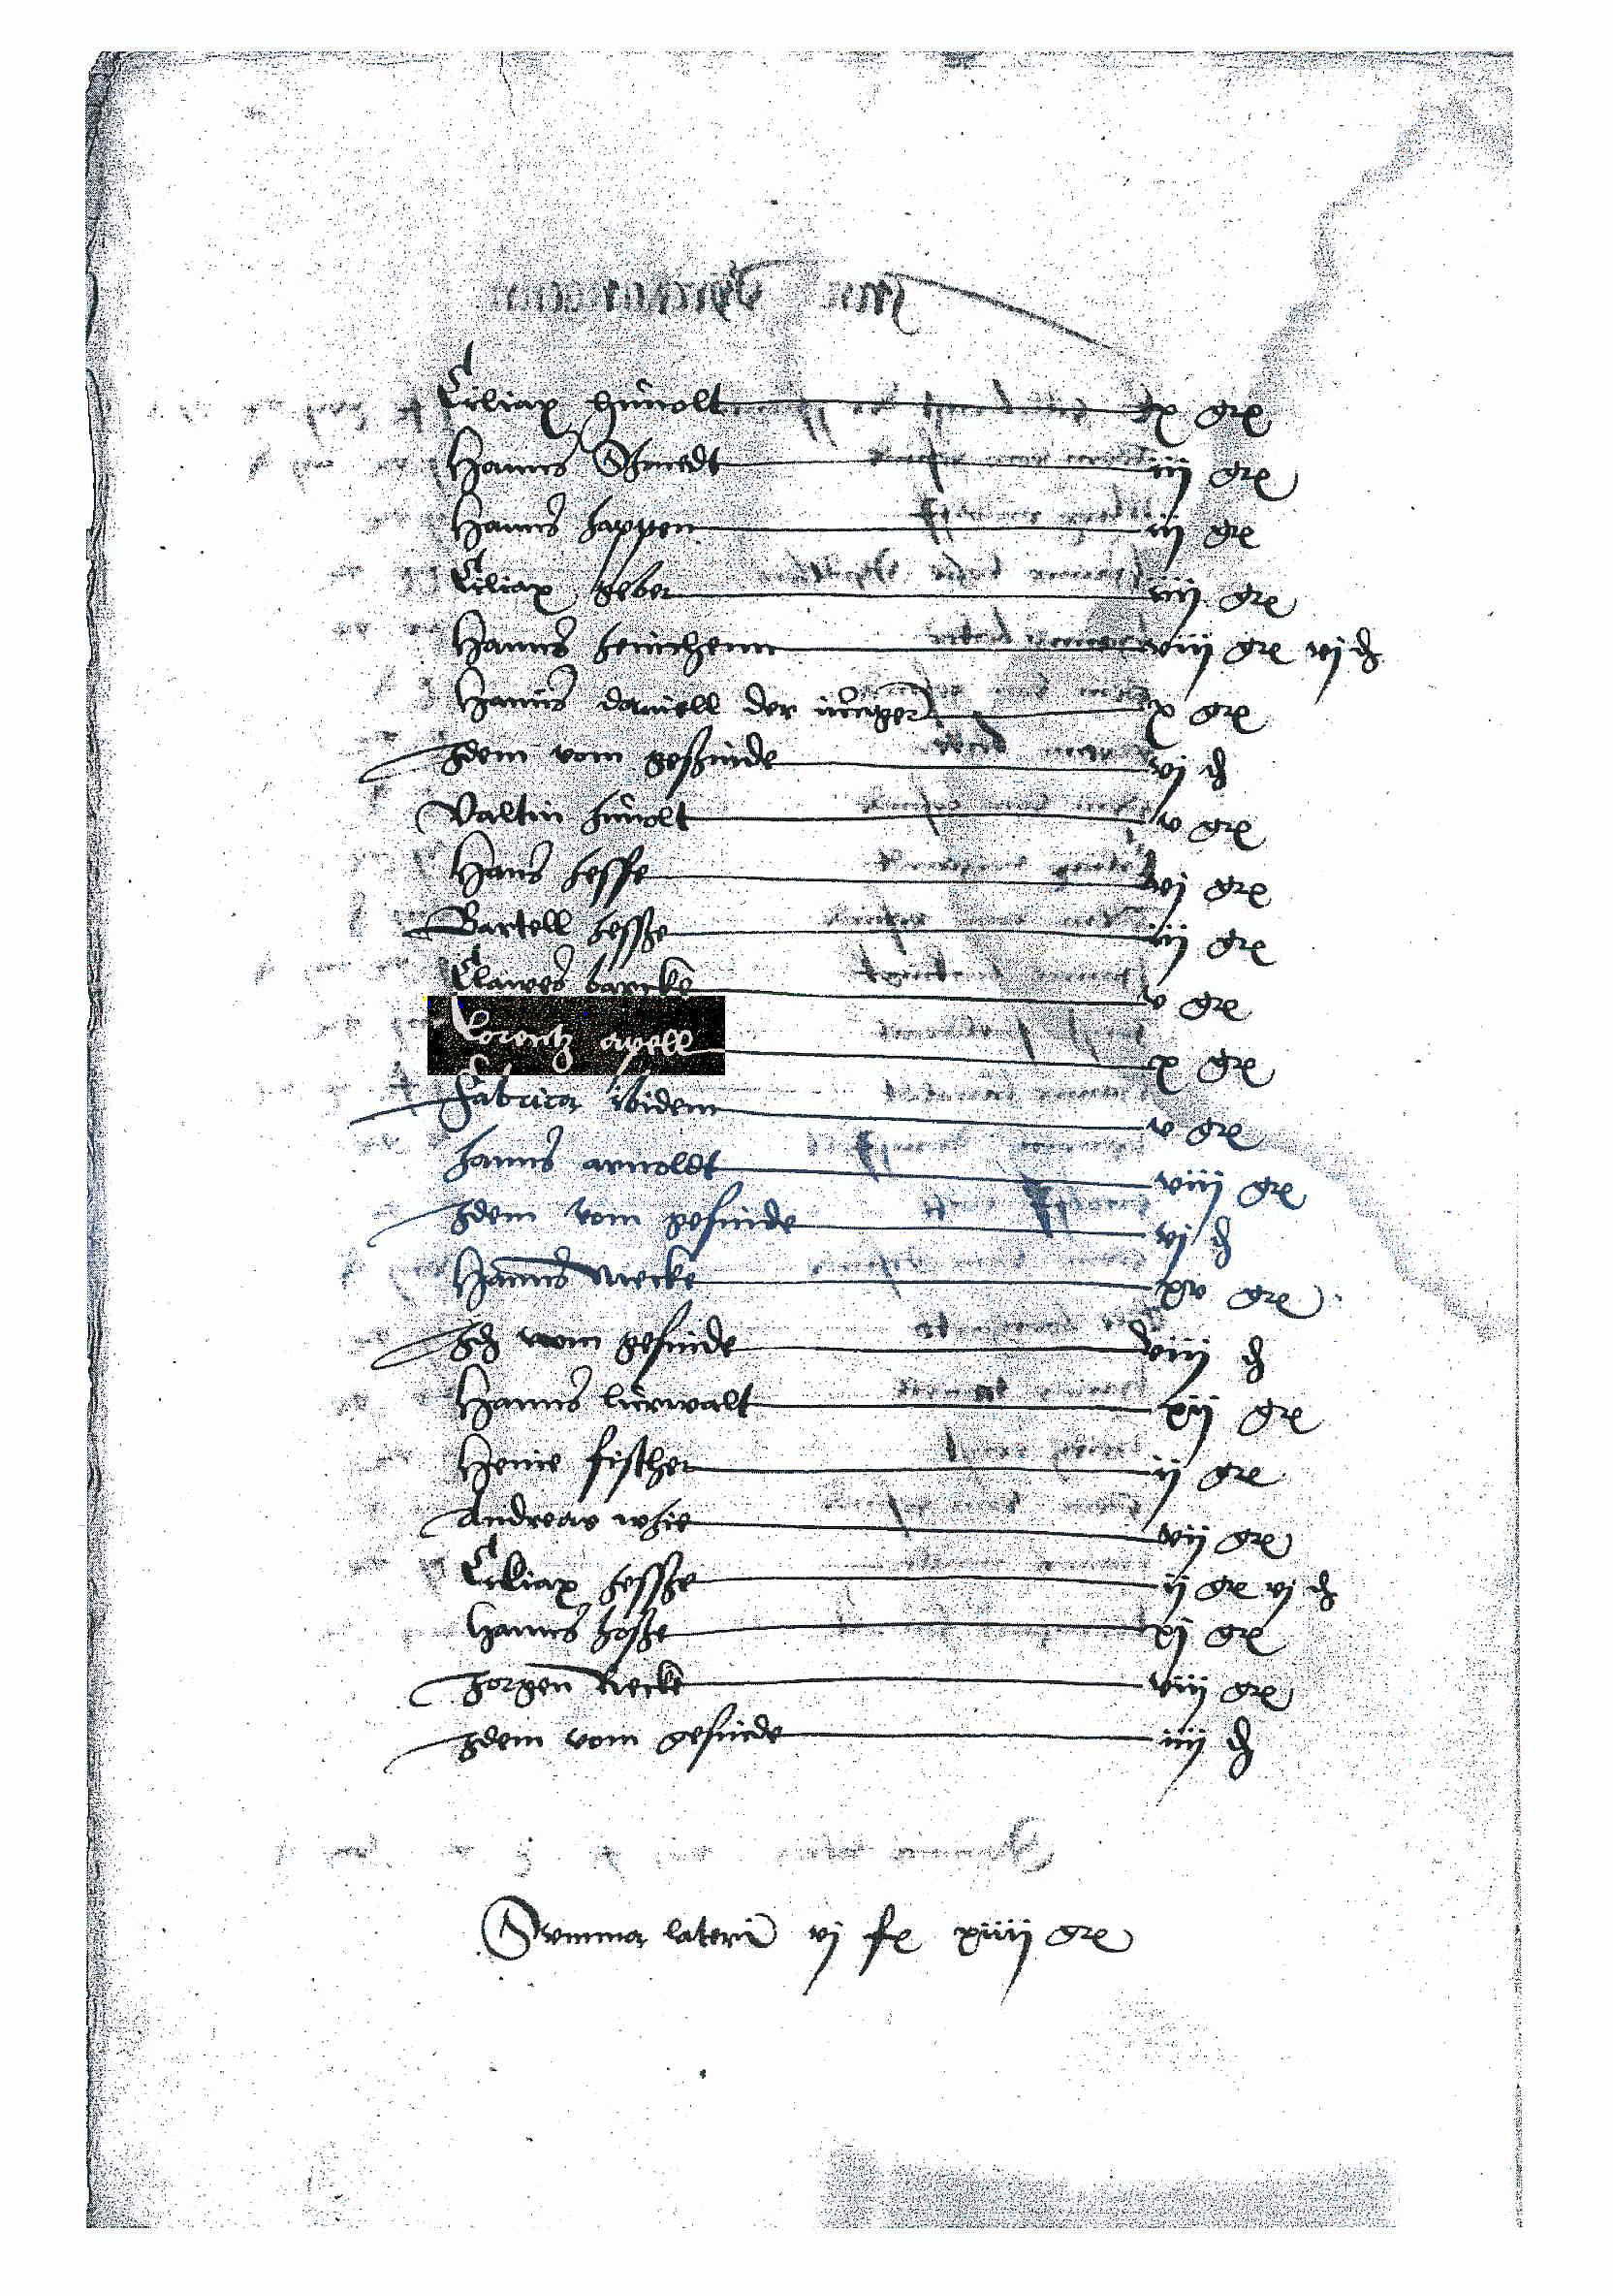 Ciliax hunolt x gre
Hanns Schmedt iij gre
Hanns happen iij gre
Ciliax geber iiij gre
Hanns heinchenn viiij gre vj d
Hanns daniell der iunger x gre
Idem vom geszinde vj d
Valtin hunolt v gre
Hans hesse vj gre
Bartell hessze iij gre
Clawes barcke v gre
Lorentz apell x gre
Fabrica ibidem v gre
hanns arnoldt viiij gre
Idem vom gesinde vj d
Hanns Mecke xv gre
Id vom gesinde viiij d
Hanns lurwalt xij gre
Heine fischer ij gre
Andreas vom gre
Ciliax hessze ij gre vj d
Hanns hosze xj gre
Jorgen Recke viij gre
Idem vom gesinde iiij d
Summa lateris vj ſs xiiij gre